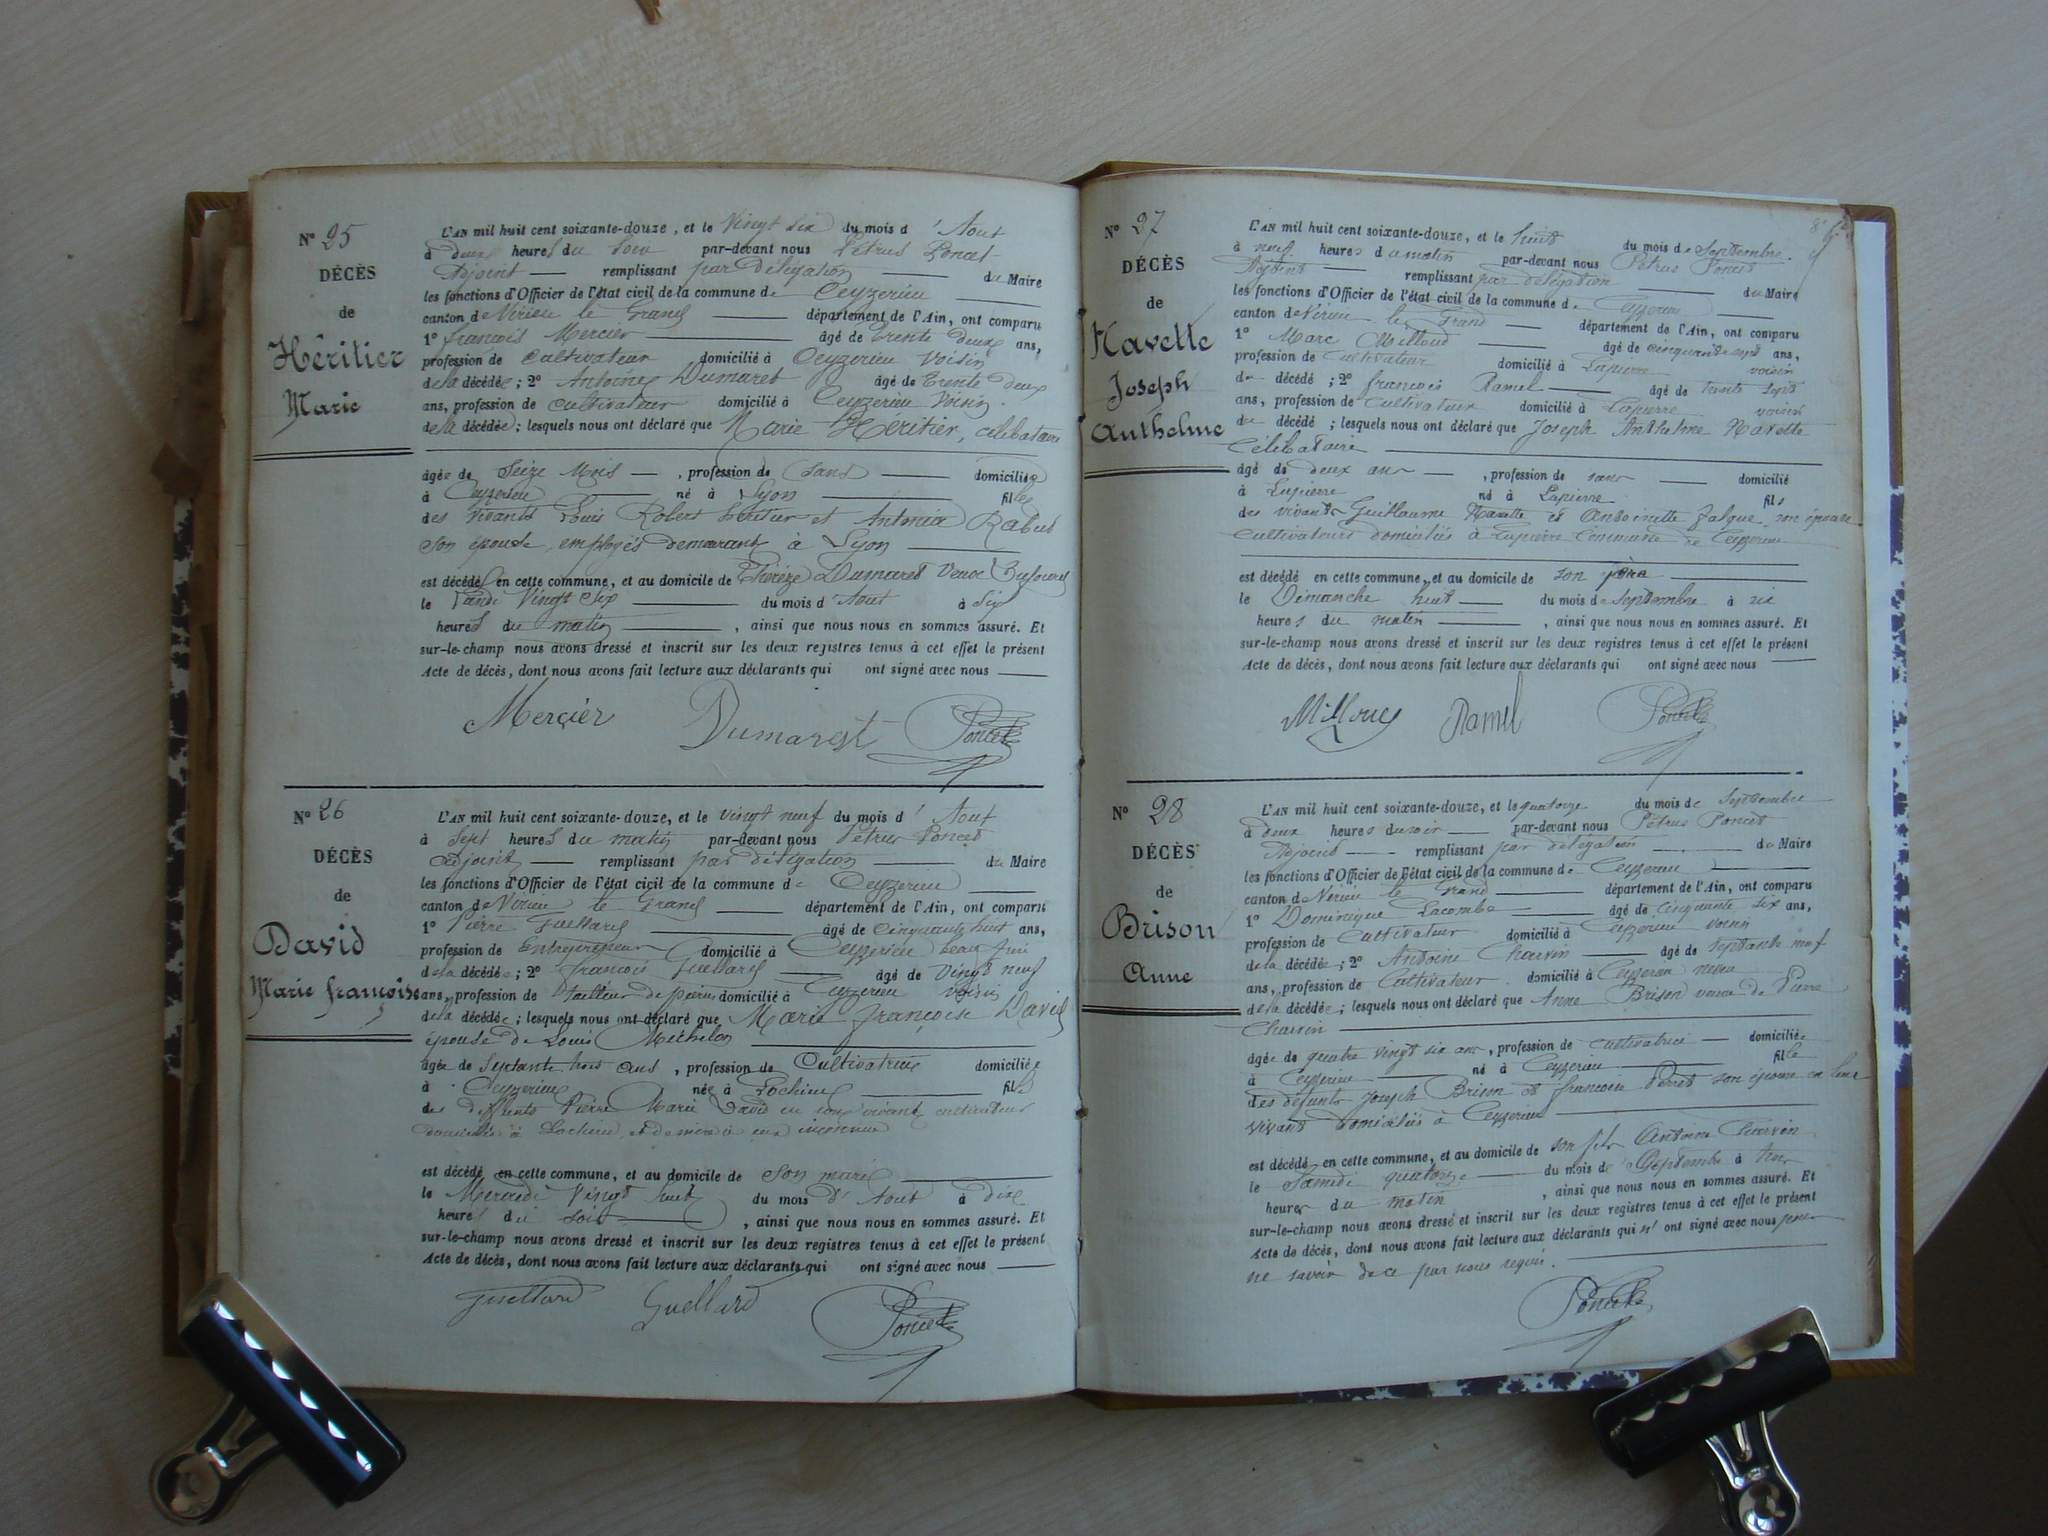 N° 25
DÉCÈS
de
Héritier
Marie
L'AN mil huit cent soixante-douze, et le Vingt six du mois d'Aout
à deux heures du Soir par-devant nous Pétrus Poncet
Adjoint remplissant par délégation du Maire
les fonctions d'Officier de l'état civil de la commune de Ceyzerieu
canton de Virieu le Grand département de l'Ain, ont comparu
1° françois Mercier âgé de trente deux ans,
profession de Cultivateur domicilié à Ceyzerieu Voisin
de la décédée ; 2° Antoine Dumarest âgé de trente deux
ans, profession de cultivateur domicilié à Ceyzerieu Voisin
de la décédée ; lesquels nous ont déclaré que Marie Héritier, célibataire
âgée de Seize Mois , profession de Sans domiciliée
à Ceyzerieu né à Lyon fille
des vivants Louis Robert héritier et Antonia
son épouse, employés demeurant à Lyon
est décédé en cette commune, et au domicile de Dumarest Veuve
le Lundi Vingt Six du mois d'Aout à Six
heures du matin , ainsi que nous nous en sommes assuré. Et
sur-le-champ nous avons dressé et inscrit sur les deux registres tenus à cet effet le présent
Acte de décès, dont nous avons fait lecture aux déclarants qui ont signé avec nous
Mercier Dumarest Poncet
N° 26
DÉCÈS
de
David
Marie françoise
L'AN mil huit cent soixante-douze, et le vingt neuf du mois d'Aout
à Sept heures du matin par-devant nous Pétrus Poncet
adjoint remplissant par délégation du Maire
les fonctions d'Officier de l'état civil de la commune de Ceyzerieu
canton de Virieu le Grand département de l'Ain, ont comparu
1° Pierre Guellard âgé de Cinquante huit ans,
profession de Entrepreneur domicilié à Ceyzerieu beau
de la décédée ; 2° françois Guellard âgé de vingt neuf
ans, profession de tailleur de pierres domicilié à Ceyzerieu voisin
de la décédée ; lesquels nous ont déclaré que Marie françoise David
épouse de Louis Michelon
âgée de Septante trois ans , profession de Cultivatrice domiciliée
à Ceyzerieu née à Lochieu fille
des deffunts Pierre Marie David en son vivant cultivateur
domicilié à Lochieu, et de mère à eux inconnue
est décédé en cette commune, et au domicile de son mari
le Mercredi Vingt huit du mois d'Aout à dix
heures du soir , ainsi que nous nous en sommes assuré. Et
sur-le-champ nous avons dressé et inscrit sur les deux registres tenus à cet effet le présent
Acte de décès, dont nous avons fait lecture aux déclarants qui ont signé avec nous
Guellard Guellard Poncet
N° 27
DÉCÈS
de
Navette
Joseph
Anthelme
L'AN mil huit cent soixante-douze, et le huit du mois de Septembre
à neuf heures du matin par-devant nous Pétrus Poncet
Adjoint remplissant par délégation du Maire
les fonctions d'Officier de l'état civil de la commune de Ceyzerieu
canton de Virieu le Grand département de l'Ain, ont comparu
1° Marc Milloud âgé de cinquante sept ans,
profession de Cultivateur domicilié à Lapierre voisin
du décédé ; 2° françois Ramel âgé de trente sept
ans, profession de Cultivateur domicilié à Lapierre voisin
du décédé ; lesquels nous ont déclaré que Joseph Anthelme Navette
Célibataire
âgé de deux ans , profession de sans domicilié
à Lapierre né à Lapierre fils
des vivants Guillaume Navette et Antoinette son épouse
Cultivateurs domiciliés à Lapierre Commune de Ceyzerieu
est décédé en cette commune, et au domicile de son père
le Dimanche huit du mois de Septembre à six
heures du matin , ainsi que nous nous en sommes assuré. Et
sur-le-champ nous avons dressé et inscrit sur les deux registres tenus à cet effet le présent
Acte de décès, dont nous avons fait lecture aux déclarants qui ont signé avec nous
Milloud Ramel Poncet
N° 28
DÉCÈS
de
Brison
Anne
L'AN mil huit cent soixante-douze, et le quatorze du mois de Septembre
à deux heures du soir par-devant nous Pétrus Poncet
Adjoint remplissant par délégation du Maire
les fonctions d'Officier de l'état civil de la commune de Ceyzerieu
canton de Virieu le Grand département de l'Ain, ont comparu
1° Dominique Lacombe âgé de cinquante six ans,
profession de Cultivateur domicilié à Ceyzerieu voisin
de la décédée ; 2° Antoine Charvin âgé de septante neuf
ans, profession de Cultivateur domicilié à Ceyzerieu neveu
de la décédée ; lesquels nous ont déclaré que Anne Brison veuve de Pierre
Charvin
âgée de quatre vingt six ans , profession de cultivatrice domiciliée
à Ceyzerieu né à Ceyzerieu fille
des défunts Joseph Brison et françoise Perret son épouse en leur
vivant domiciliés à Ceyzerieu
est décédé en cette commune, et au domicile de son fils Antoine Charvin
le Samedi quatorze du mois de Septembre à
heures du matin , ainsi que nous nous en sommes assuré. Et
sur-le-champ nous avons dressé et inscrit sur les deux registres tenus à cet effet le présent
Acte de décès, dont nous avons fait lecture aux déclarants qui n'ont signé avec nous pour
ne savoir de ce par nous requis.
Poncet